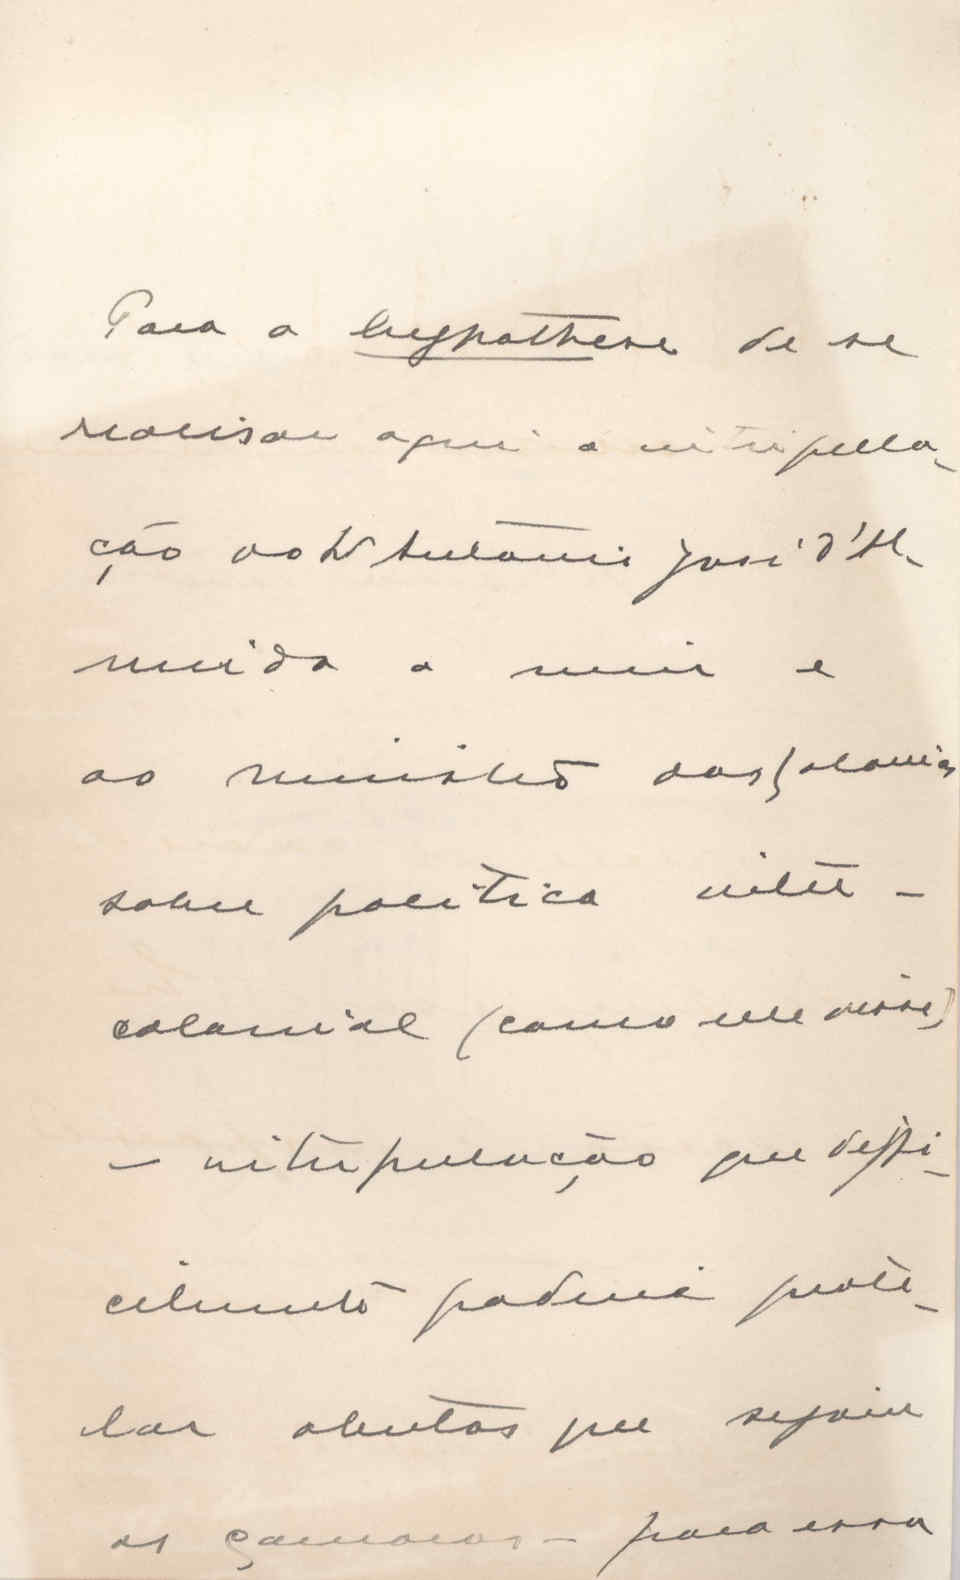 Para a hypothese de se
realisar aqui a interpella-
ção do Dr Antonio José d'Al-
meida a mim e
ao ministro das Colonias
sobre politica inter-
colonial (como elle disse)
- interpelação que deffi-
cilmente poderei prote-
lar abertas que sejam
as Camaras - para essa